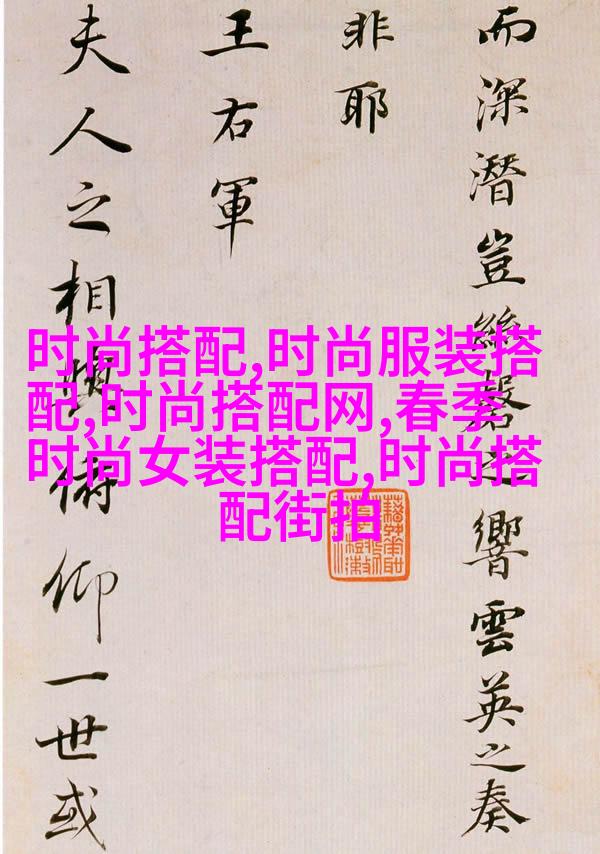 而深潛豈絲磬之響雲英之奏
非耶
王右軍
夫人之相與俯仰一世或
时尚搭配,时尚服装搭
配,时尚搭配网,春季
时尚女装搭配,时尚搭
配街拍